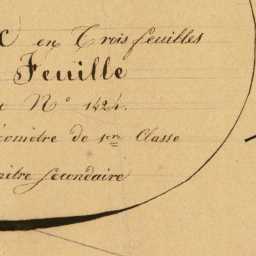 en Trois feuilles
Feuille
N° 1424.
de 1re Classe
secondaire